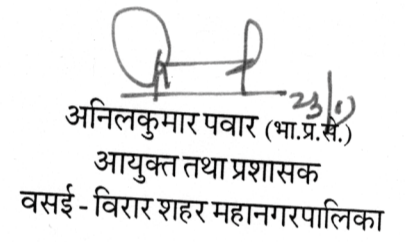 अनिलकुमार पवार (भा.प्र.से.)
आयुक्त तथा प्रशासक
वसई - विरार शहर महानगरपालिका